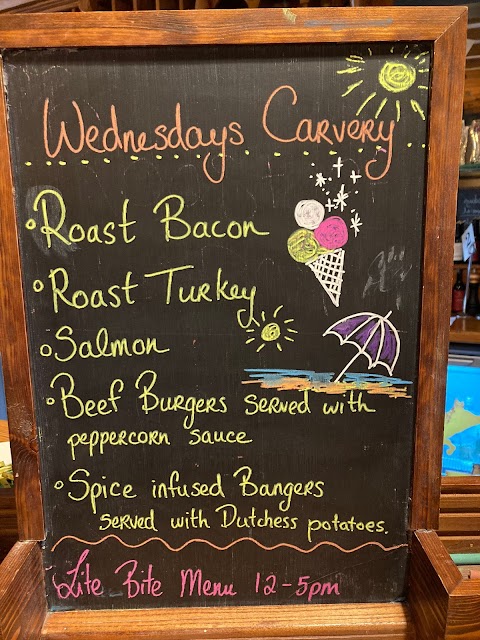 Wednesdays Carvery
Roast Bacon
Roast Turkey
Salmon
Beef Burgers served with
peppercorn sauce
Spice infused Bangers
served with Dutchess potatoes.
Lite Bite Menu 12-5pm